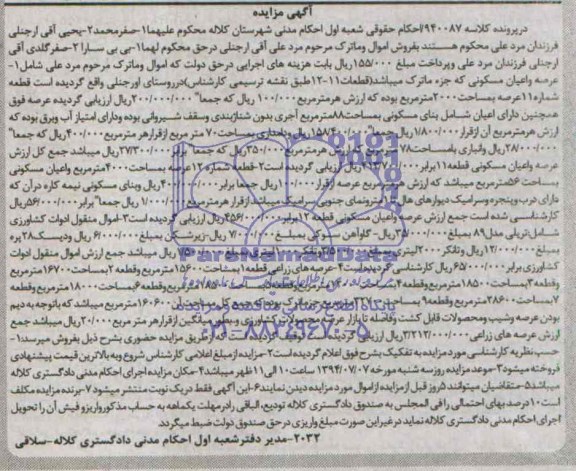 آگهی مزایده
درپرونده کلاسه ۹۴۰۰۸۷/احکام حقوقی شعبه اول احکام مدنی شهرستان کلاله محکوم علیهما۱-صفرمحمد۲-یحیی آقی ارجنلی
فرزندان مرد علی محکوم هستند بفروش اموال وماترک مرحوم مرد علی آقی ارجنلی درحق محکوم لهما۱-بی بی سارا ۲-صفرگلدی آقی
ارجنلی فرزندان مرد علی وپرداخت مبلغ ۱۵۵/۰۰۰ریال بابت هزینه های اجرایی درحق دولت که اموال وماترک مرحوم مرد علی شامل۱-
عرصه واعیان مسکونی که جزء ماترک میباشد(قطعات۱۱-۱۲طبق نقشه ترسیمی کارشناس)درروستای اورجنلی واقع گردیده است قطعه
شماره۱۱عرصه بمساحت۲۰۰۰مترمربع بوده که ارزش هرمترمربع ۱۰۰/۰۰۰ ریال که جمعا" ۲۰۰/۰۰۰/۰۰۰ ریال ارزیابی گردیده عرصه فوق
همچنین دارای اعیان شامل بنای مسکونی بمساحت۸۸مترمربع آجری بدون شناژبندی وسقف شیروانی بوده ودارای امتیاز آب وبرق بوده که
ارزش هرمترمربع آن ازقرار۱/۸۰۰/۰۰۰ریال جمعا" ۱۵۸/۴۰۰/۰۰۰ریال ودامداری بمساحت۷۰ متر مربع ازقرارهر مترمربع۴۰۰/۰۰۰ریال که جمعا"
۲۸/۰۰۰/۰۰۰ریال وانباری بامساحت۷۸ ارزش هرمترمربع ۳۵۰/۰۰۰ریال که جمعا" برابر۲۷/۳۰۰/۰۰۰ریال میباشد جمع کل ارزش
عرصه واعیان مسکونی قطعه۱۱برابر ریال ارزیابی گردیده است۲-قطعه شماره ۱۲عرصه بمساحت۴۰۰۰مترمربع واعیان مسکونی
بمساحت۵۶مترمربع میباشد که ارزش هرمترمربع عرصه ازقرار ریال جمعا برابر ریال وبنای مسکونی نیمه کاره درآن که
دارای درب وپنجره وسرامیک دیوارهای هال ونمای جنوبی سرامیک میباشد ازقرار هرمترمربع ۱/۰۰۰/۰۰۰ ریال جمعا"برابر۵۶/۰۰۰/۰۰۰ریال
کارشناسی شده است جمع ارزش عرصه واعیان مسکونی قطعه ۱۲برابر۴۵۶/۰۰۰/۰۰۰ریال ارزیابی گردیده است۳-اموال منقول ادوات کشاورزی
شامل تریلی مدل۸۹ بمبلغ ۳۵/۰۰۰/۰۰۰ریال-گاوآهن سوکی بمبلغ ۷/۰۰۰/۰۰۰ ریال-زیرشکن بمبلغ ۶/۰۰۰/۰۰۰ ریال ودیسک ۲۸پره
بمبلغ ۱۲/۰۰۰/۰۰۰ریال وتانکر ۲۰۰۰لیتری بمبلغ ریال میباشد جمع ارزش اموال منقول ادوات
کشاورزی برابر ۶۵/۰۰۰/۰۰۰ ریال کارشناسی گردیده است۴-عرصه های زراعی قطعه۱بمساحت۱۵۶۰۰مترمربع وقطعه ۲بمساحت۱۶۷۰۰مترمربع
وقطعه۳بمساحت۱۸۵۰۰مترمربع وقطعه۴بمساحت مترمربع وقطعه۵بمساحت۱۷۸۰۰مترمربع وقطعه۶بمساحت۱۸۰۰۰مترمربع وقطعه
۷بمساحت۳۸۶۰۰مترمربع وقطعه۹ بمساحت مترمربع جزءماترک بوده که جمع کل مساحت آن ۱۶۰۶۰۰مترمربع میباشد که باتوجه به دیم
بودن عرصه وشیب ومحصولات قابل کشت وفاصله تابازار عرضه محصولات کشاورزی وبطور میانگین ازقرارهر متر مربع ۲۰/۰۰۰ریال میباشد جمع
ارزش عرصه های زراعی۳/۲۱۲/۰۰۰/۰۰۰ریال ارزیابی گردیده است که ازطریق مزایده حضوری بشرح ذیل بفروش میرسد:۱-
حسب نظریه کارشناسی مورد مزایده به تفکیک بشرح فوق اعلام گردیده است۲-مزایده ازمبلغ اعلامی کارشناس شروع وبه بالاترین قیمت پیشنهادی
فروخته میشود۳-موعد مزایده روزسه شنبه مورخه ۱۳۹۴/۰۷/۰۷ ساعت ۱۰الی ۱۱ظهر میباشد۴-مکان مزایده اجرای احکام مدنی دادگستری کلاله
میباشد۵-متقاضیان میتوانند ۵روز قبل ازمزایده ازاموال مورد مزایده دیدن نمایند۶-این آگهی فقط دریک نوبت منتشر میشود۷-برنده مزایده مکلف
است۱۰درصد بهای احتمالی را فی المجلس به صندوق دادگستری کلاله تودیع،الباقی رادرمهلت یکماهه به حساب مذکورواریزو فیش آن را تحویل
اجرای احکام مدنی دادگستری کلاله نماید درغیراین صورت مبلغ واریزی درحق صندوق دولت ضبط میگردد.
۲۰۳۲-مدیر دفترشعبه اول احکام مدنی دادگستری کلاله-سلاقی
ParsNamadData
پایگاه اطلاع رسانی پارس نماد داده
۰۲۱-۸۸۳۴۹۶۷۰-۵